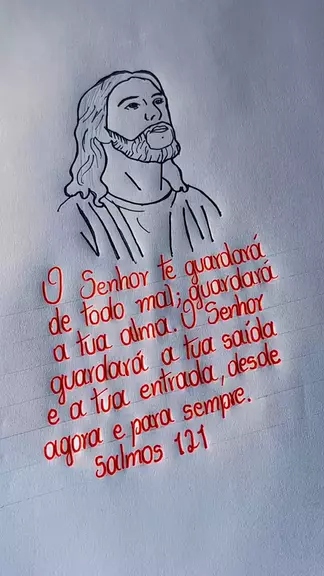 O Senhor te guardará
de todo mal; guardará
a tua alma. O Senhor
guardará a tua saída
e a tua entrada, desde
agora e para sempre.
Salmos 121